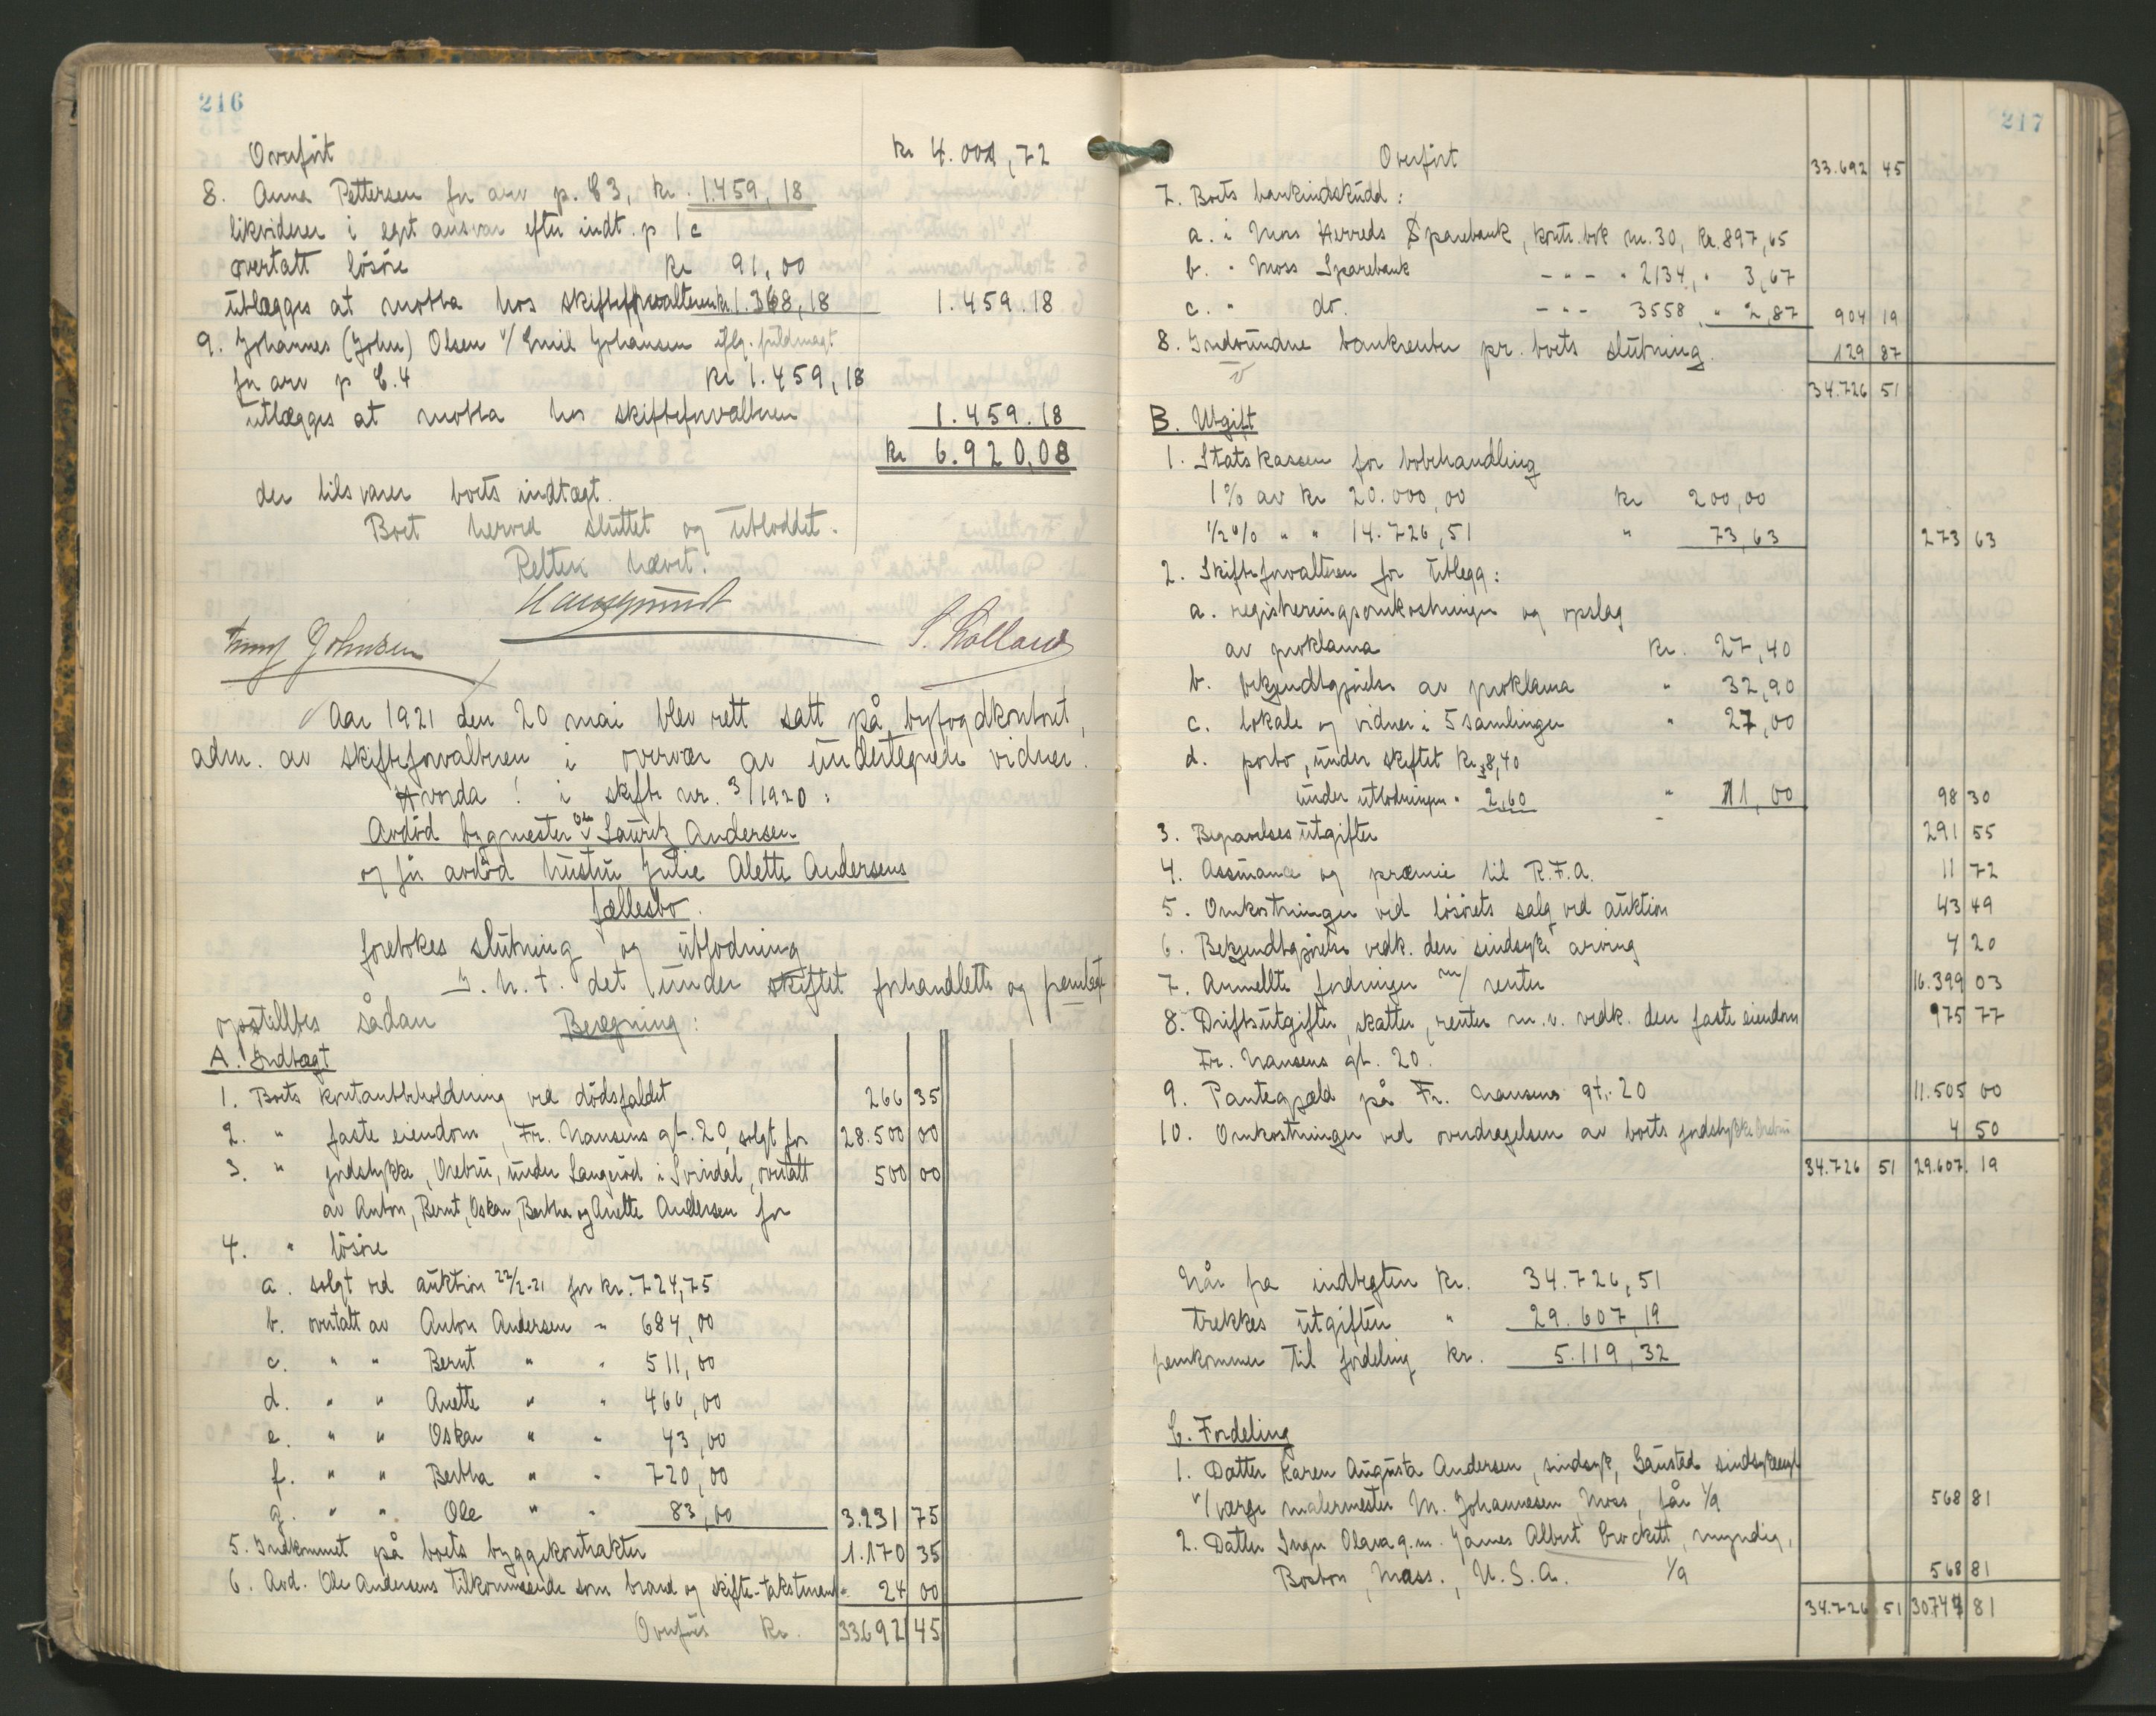 216
Overført kr 4.001,72
8. Anna Pettersen for arv p. C3, kr. 1.459,18
likviderer i eget ansvar efter indt. p 1c
overtatt løsøre kr 91,00
utlægges at motta hos skifteforvalteren kr 1.368,18 1.459.18
9. Johannes (John) Olsen v/ Emil Johansen iflg. fuldmagt
for arv p C.4 kr 1.459,18
utlægges at motta hos skifteforvalteren 1.459.18
kr 6.920,08
der tilsvarer boets indtægt.
Boet herved sluttet og utloddet.
Retten hævet.
Johnsen S. Lolland
Aar 1921 den 20 mai blev rett satt på byfogdkontoret,
adm. av skifteforvalteren i overvær av undertegnede vidner.
Hvorda! i skifte nr. 3/1920:
Avdød bygmester Ole Lauritz Andersen
og før avdød hustru Julie Alette Andersens
fællesbo.
foretokes slutning og utlodning
I. h. t. det under skiftet forhandlette og fremlagte
opstilltes sådan Beregning:
A. Indtægt
1. Boets kontantbeholdning ved dødsfaldet 266 35
2. " faste eiendom, Fr. Nansens gt. 20, solgt for 28.500 00
3. " jordstykke, Orebru, under Langerød i Svindal, overtatt 500 00
av Anton, Bernt, Oskar, Bertha og Anette Andersen for
4. " løsøre
a. solgt ved auktion 22/2-21 for kr. 724,75
b. overtatt av Anton Andersen " 684,00
c. " " Bernt " " 511,00
d. " " Anette " " 466,00
e. " " Oskar " " 43,00
f. " " Bertha " " 720,00
g. " " Ole " " 83,00 3.231 75
5. Indkommet på boets byggekontrakter 1.170 35
6. Avd. Ole Andersens tilkommende som brand og skifte-takstmand " 24 00
Overføres kr. 33.692 45
217
Overført 33.692 45
7. Boets bankindskudd:
a. i Moss Herreds Sparebank, kontr. bok nr. 30, kr. 897,65
b. " Moss Sparebank - " - " 2134, " 3,67
c. " do. - " - 3558, " 2,87 904 19
8. Indvundne bankrenter pr. boets slutning. 129 87
34.726 51
B. Utgift
1. Statskassen for bobehandling
1% av kr 20.000,00 kr 200,00
1/2% " " 14.726,51 " 73,63 273 63
2. Skifteforvalteren for utlegg:
a. registreringsomkostninger og opslag
av proklama kr. 27,40
b. bekjendtgjørelse av proklama " 32,90
c. lokale og vidner i 5 samlinger " 27,00
d. porto, under skiftet kr. 8,40
under utlodningen " 2,60 " 11,00 98 30
3. Begravelsesutgifter 291 55
4. Assurance og præmie til R.F.A. 11 72
5. Omkostninger ved løsørets salg ved auktion 43 49
6. Bekjendtgjørelse vedk. den sindsyke arving 4 20
7. Anmeldte fordringer m/ renter 16.399 03
8. Driftsutgifter, skatter, renter m.v. vedk. den faste eiendom 975 77
Fr. Nansens gt. 20.
9. Pantegjeld på Fr. Nansens gt. 20 11.505 00
10. Omkostninger ved overdragelsen av boets jordstykke Orebru 4 50
34.726 51 29.607. 19
Når fra indtegten kr. 34.726,51
trekkes utgiften " 29.607,19
fremkommer til fordeling kr. 5.119,32
C. Fordeling
1. Datter Karen Augusta Andersen, sindsyk, Gaustad sindsykeasyl
v/ verge malermester M. Johannesen, Moss, får 1/9 568 81
2. Datter Inger Olava g.m. James Albert Crockett, myndig,
Boston, Mass., U.S.A. 1/9 568 81
34.726 51 30744 81